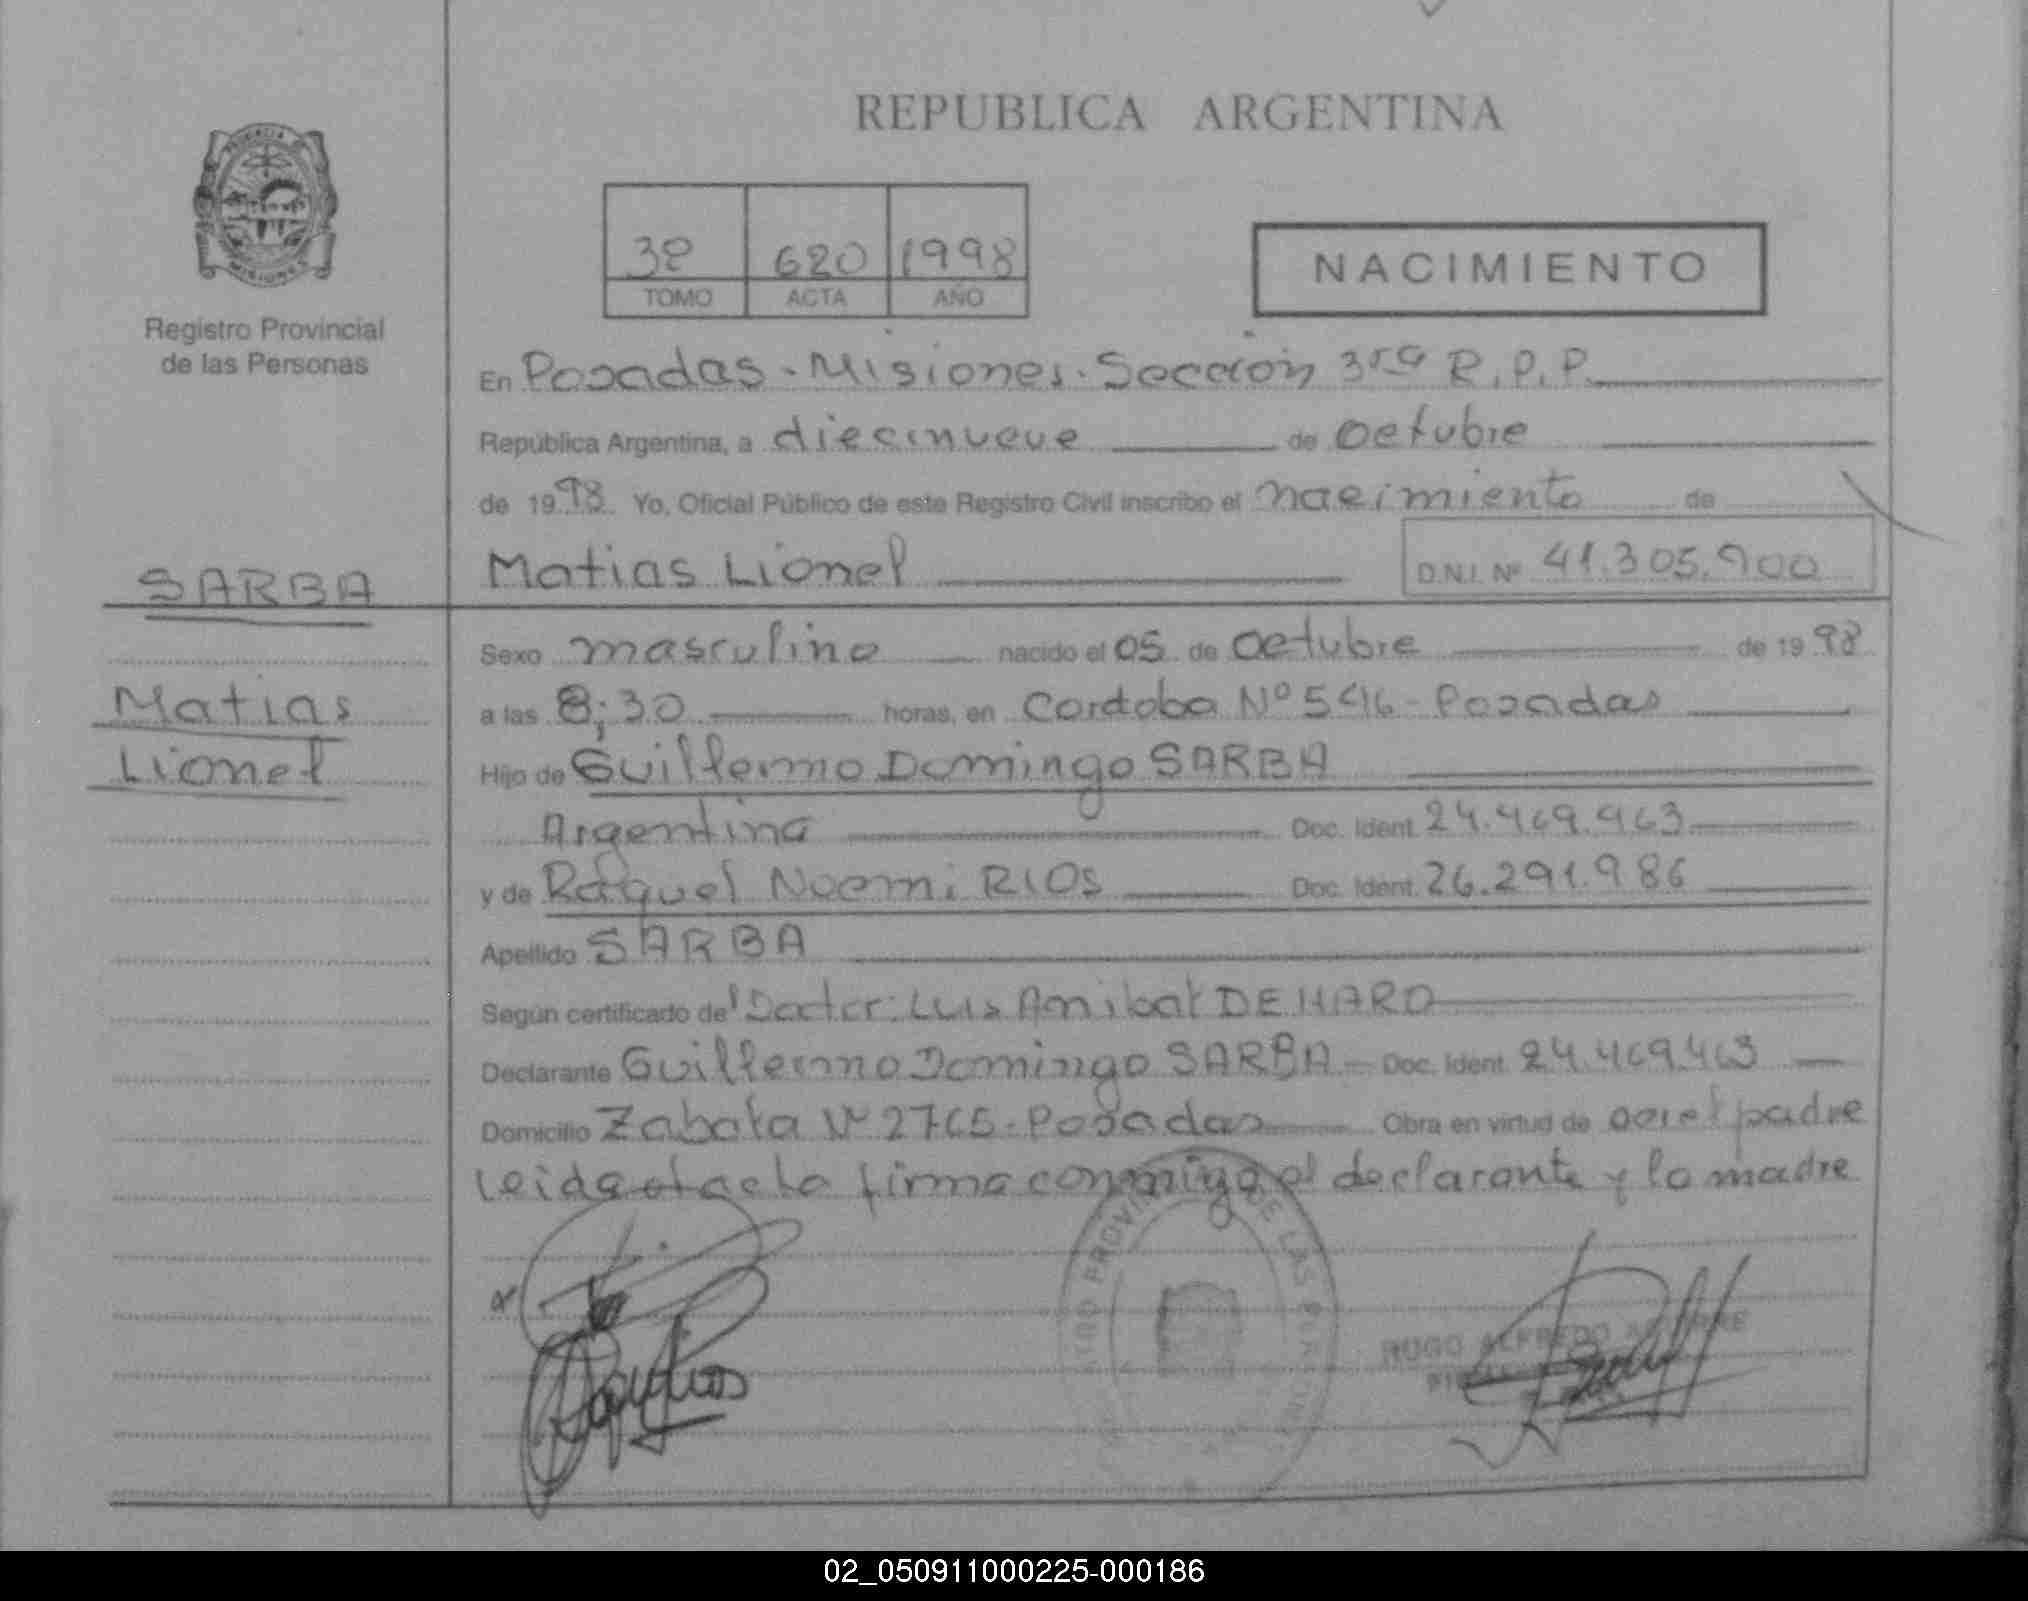 REPUBLICA ARGENTINA
PROVINCIA
MISIONES
Registro Provincial
de las Personas
3º 620 1998
TOMO ACTA AÑO
NACIMIENTO
En Posadas - Misiones - Sección 3ra R.P.P.
República Argentina, a diecinueve de octubre
de 1998 Yo, Oficial Público de este Registro Civil inscribo el nacimiento de
SARBA
Matias Lionel D.N.I. Nº 41.305.900
Sexo masculino nacido el 05 de octubre de 1998
Matias
a las 8:30 horas, en Cordoba Nº 546 - Posadas
Lionel
Hijo de Guillermo Domingo SARBA
Argentina Doc. Ident. 24.469.463
y de Raquel Noemi RIOS Doc. Ident. 26.291.986
Apellido SARBA
Según certificado del Doctor: Luis Anibal DE HARO
Declarante Guillermo Domingo SARBA Doc. Ident. 24.469.463
Domicilio Zabala Nº 2765 - Posadas Obra en virtud de ser el padre
Leida el acta firma conmigo el declarante y la madre
HUGO ALFREDO AGUIRRE
02_050911000225-000186